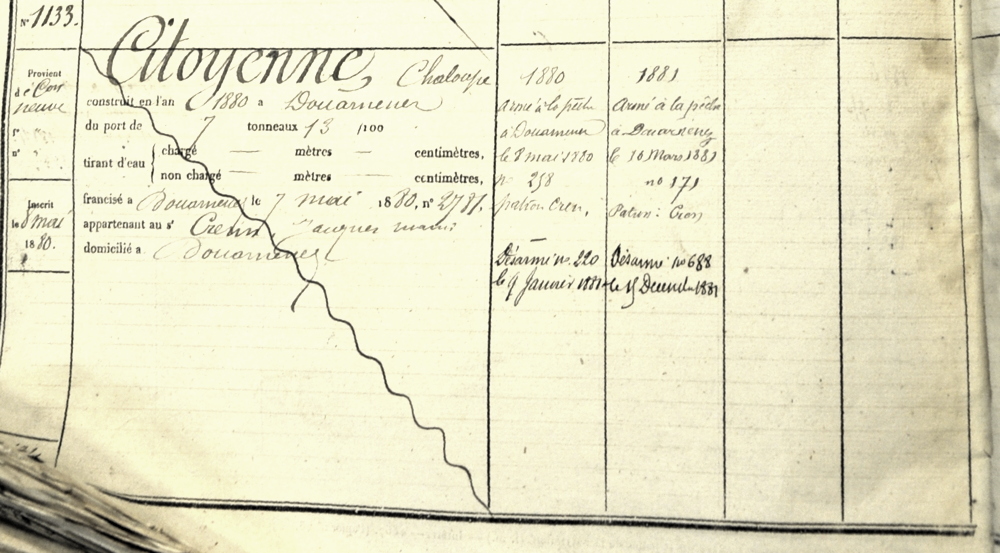 N° 1133.
Provient
de Con
neuve
f°
n°
Inscrit
le 8 mai
1880.
Citoyenne, Chaloupe
construit en l'an 1880 a Douarnenez
du port de 7 tonneaux 13 /100
tirant d'eau { chargé — mètres — centimètres,
non chargé — mètres — centimètres,
francisé a Douarnenez le 7 mai 1880, n° 2781.
appartenant au sr Jacques marin
domicilié a Douarnenez
1880
armé à la pêche
à Douarnenez
le 8 mai 1880
n° 258
patron Cren,
Désarmé n° 220
le 9 Janvier 1881
1881
Armé à la pêche
à Douarnenez
le 16 Mars 1881
n° 171
Patron : Cren
Désarmé n° 688
le 15 Décembre 1881